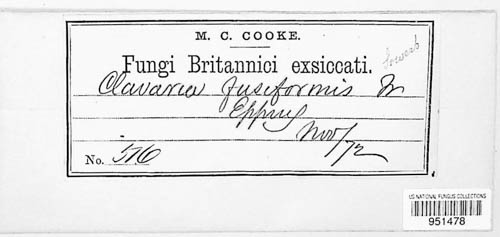 M. C. COOKE.
Fungi Britannici exsiccati.
Sowerb
Clavaria fusiformis
Epping
Nov/72
No. 516
US NATIONAL FUNGUS COLLECTIONS
951478